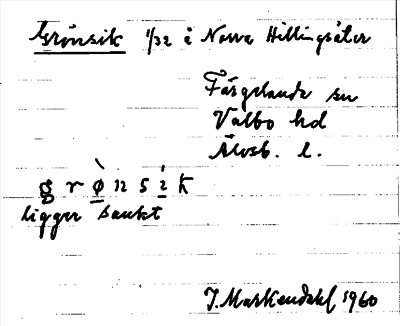 Grönsik 1/32 å Norra Hillingsäter
Färgelanda sn
Valbo hd
Älvsb. l.
g r ø n s i k
ligger sankt
J. Markendahl 1960